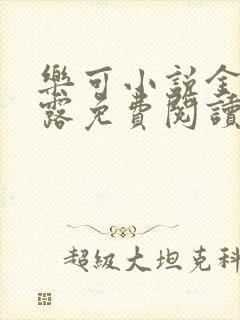 樂可小说全
露免費閱讀
超級大坦克科